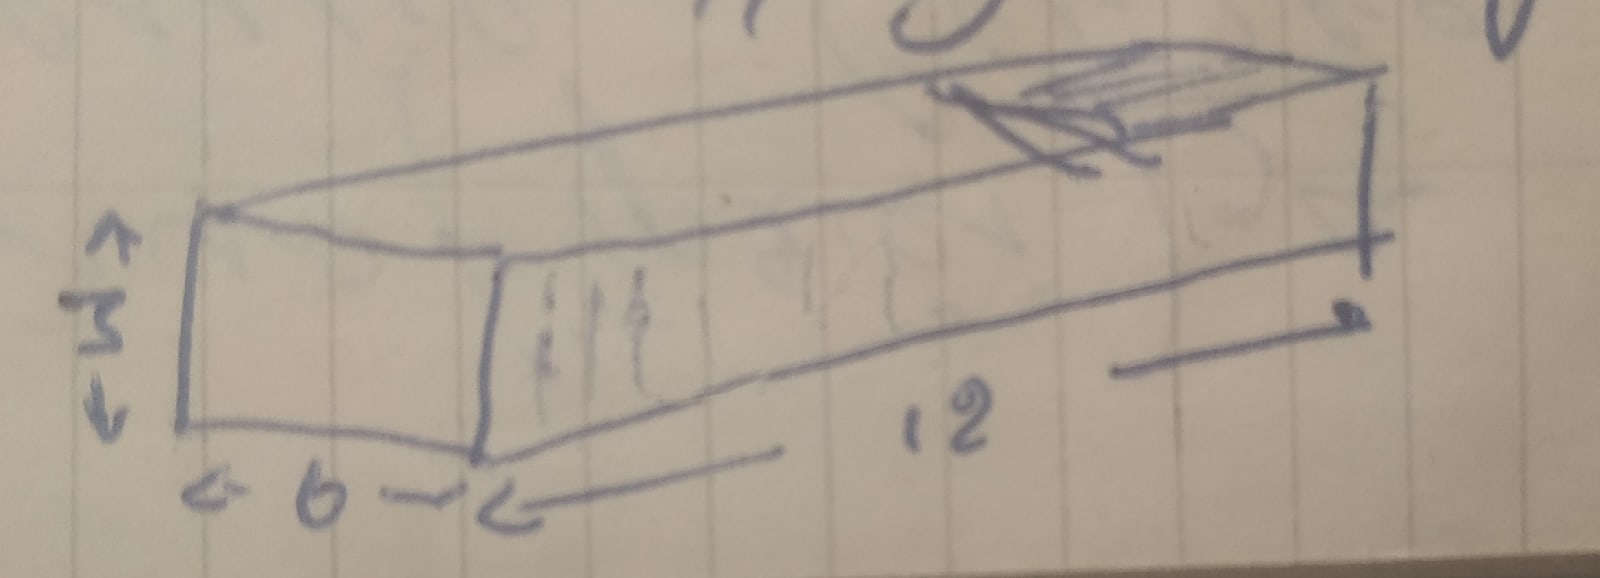 3
6
12